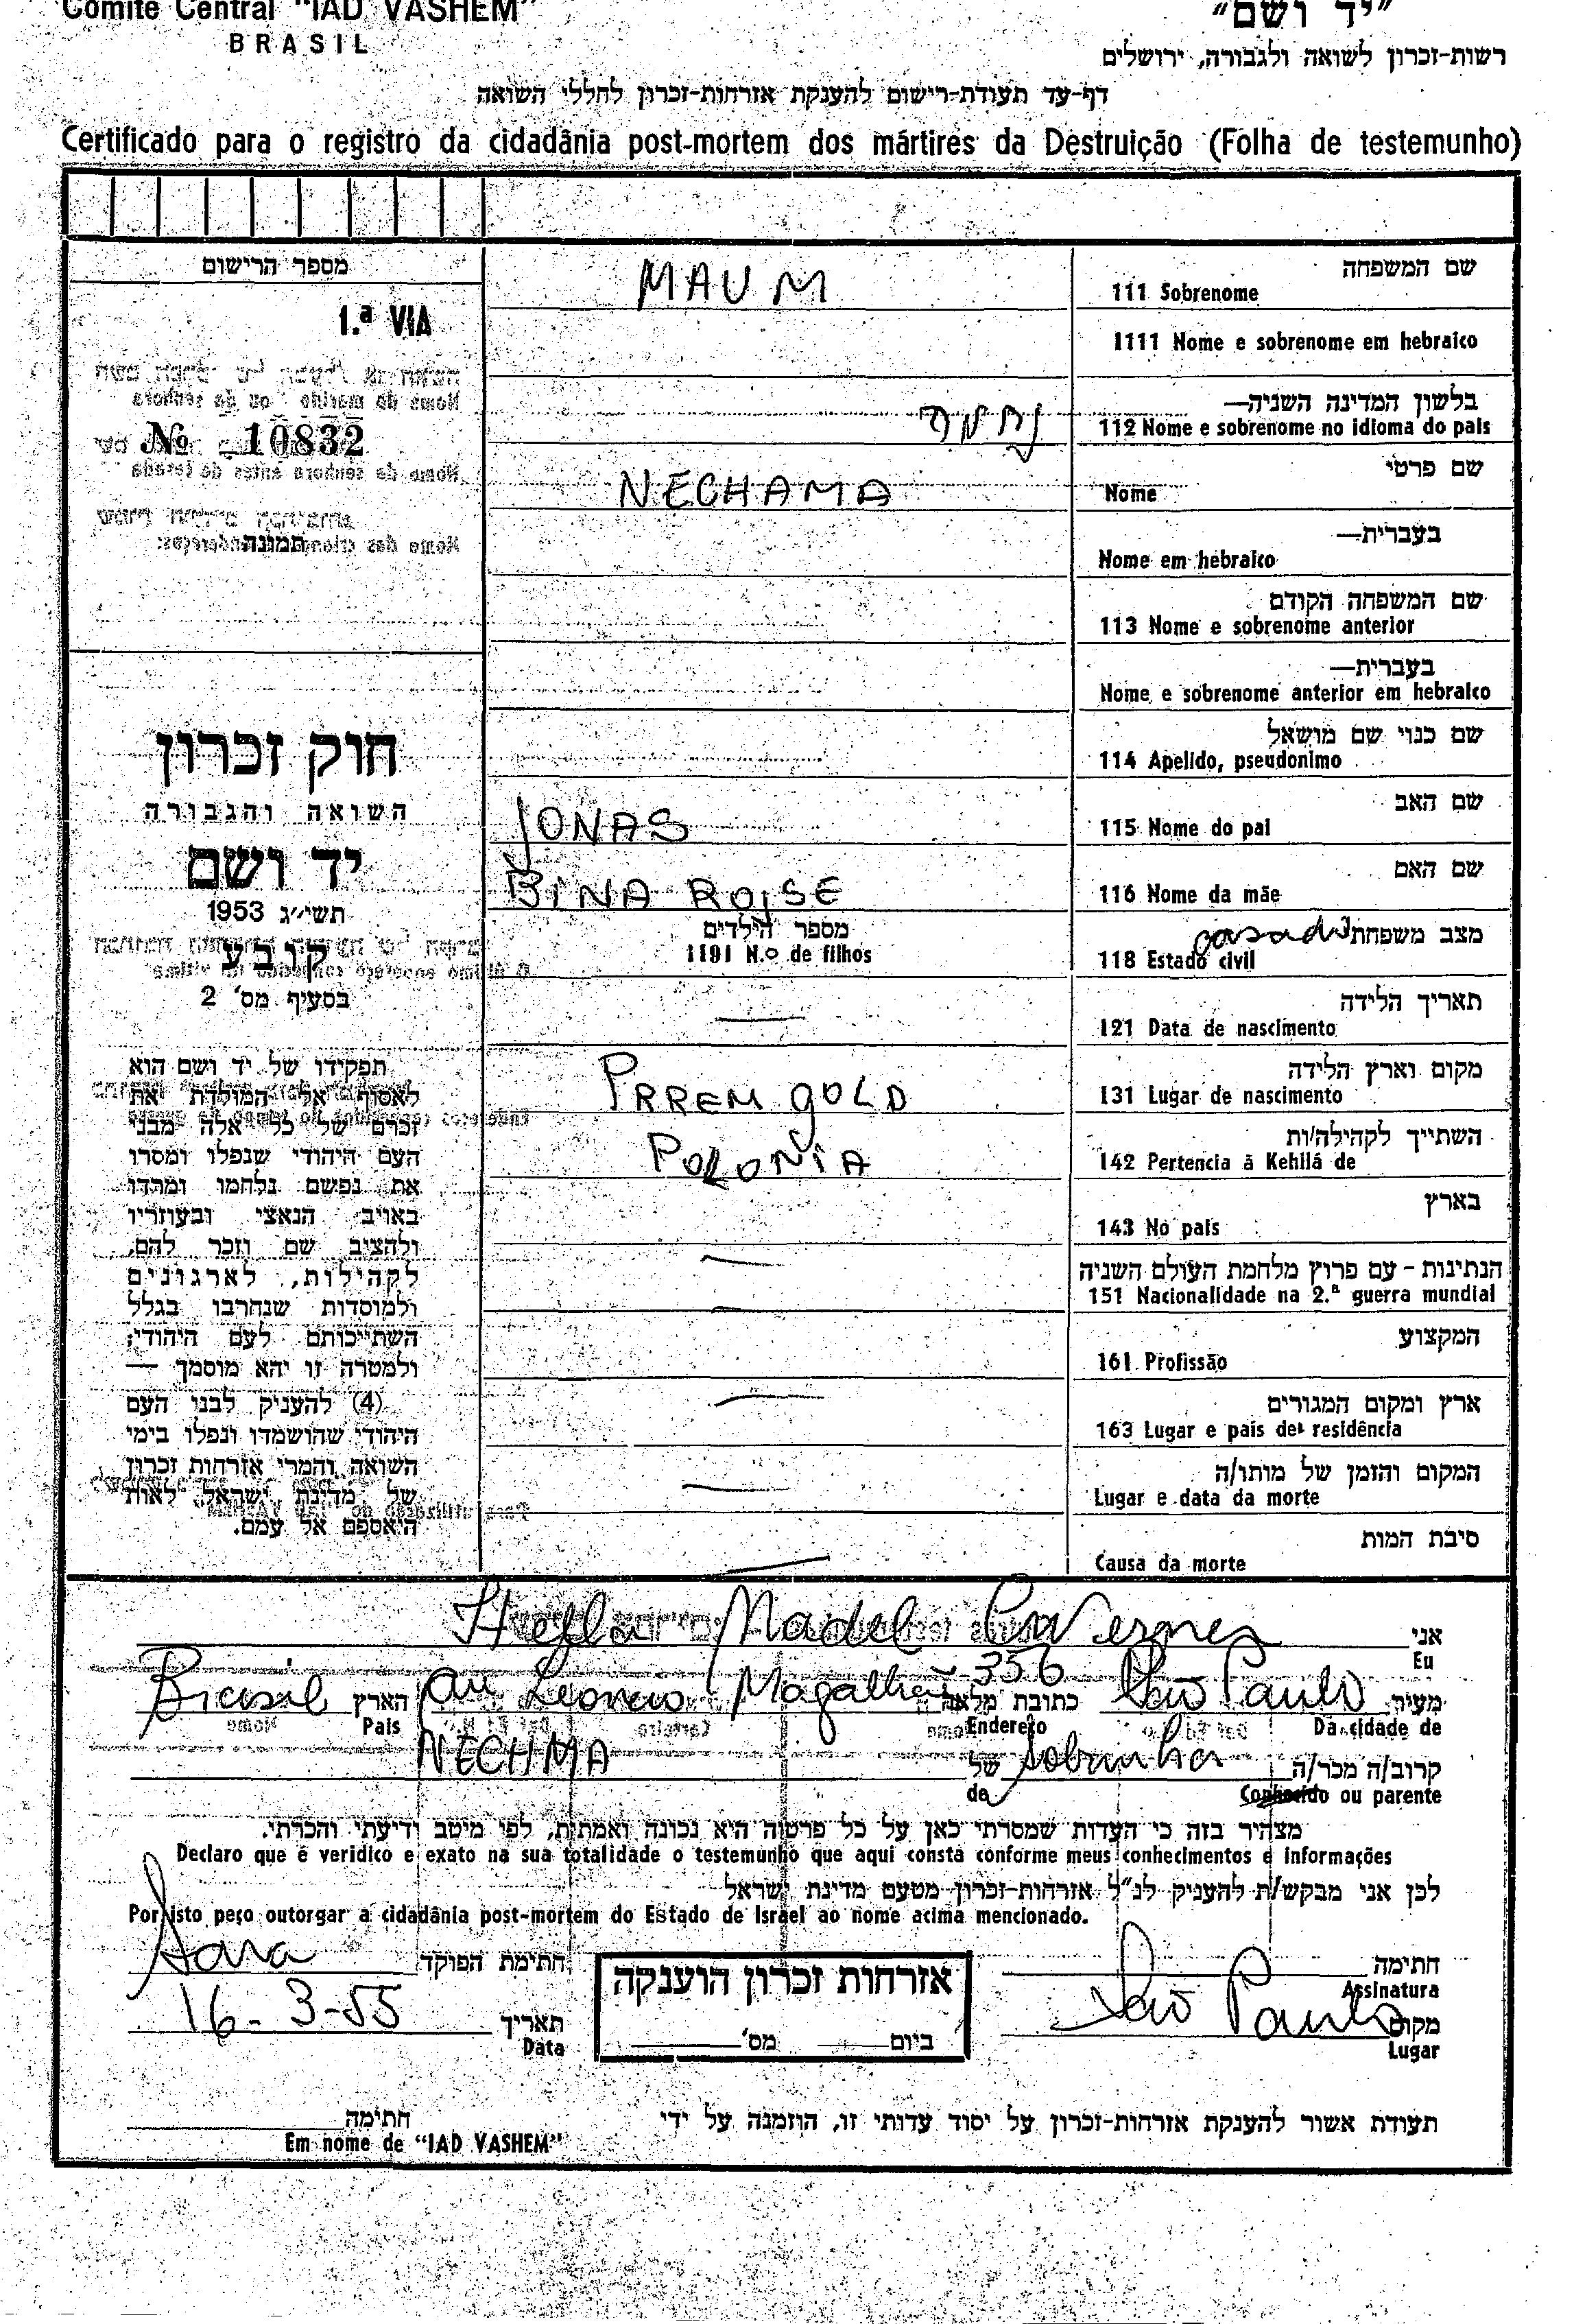 Comité Central "IAD VASHEM"
BRASIL
"יד ושם"
רשות-זכרון לשואה ולגבורה, ירושלים
דף-עד תעודת-רישום להענקת אזרחות-זכרון לחללי השואה
Certificado para o registro da cidadânia post-mortem dos mártires da Destruição (Folha de testemunho)
מספר הרישום
1.ª VIA
№ 10832
תמונה
חוק זכרון
השואה והגבורה
יד ושם
תשי״ג 1953
קובע
בסעיף מס' 2
תפקידו של יד ושם הוא
לאסוף אל המולדת את
זכרם של כל אלה מבני
העם היהודי שנפלו ומסרו
את נפשם נלחמו ומרדו
באויב הנאצי ובעוזריו
ולהציב שם וזכר להם,
לקהילות, לארגונים
ולמוסדות שנחרבו בגלל
השתייכותם לעם היהודי;
ולמטרה זו יהא מוסמך —
(4) להעניק לבני העם
היהודי שהושמדו ונפלו בימי
השואה והמרי אזרחות זכרון
של מדינת ישראל לאות
היאספם אל עמם.
שם המשפחה
111 Sobrenome MAUM
1111 Nome e sobrenome em hebraico
בלשון המדינה השניה—
112 Nome e sobrenome no idioma do pais
שם פרטי
Nome NECHAMA
בעברית—
Nome em hebraico
שם המשפחה הקודם
113 Nome e sobrenome anterior
בעברית—
Nome e sobrenome anterior em hebraico
שם כנוי שם מושאל
114 Apelido, pseudonimo
שם האב
115 Nome do pai JONAS
שם האם
116 Nome da mãe BINA ROISE
מצב משפחתי casado
118 Estado civil
מספר הילדים
1191 N.º de filhos
תאריך הלידה
121 Data de nascimento
מקום וארץ הלידה
131 Lugar de nascimento PRREM GOLD
השתייך לקהילה/ות
142 Pertencia à Kehilá de POLONIA
בארץ
143 No pais
הנתינות - עם פרוץ מלחמת העולם השניה
151 Nacionalidade na 2.ª guerra mundial
המקצוע
161 Profissão
ארץ ומקום המגורים
163 Lugar e pais de residência
המקום והזמן של מותו/ה
Lugar e data da morte
סיבת המות
Causa da morte
אני
Eu Madel
מעיר São Paulo כתובת מלאה Magalhães 356 הארץ Brasil
Da cidade de Endereço Pais
קרוב/ה מכר/ה Sobrinha של NECHMA
Conhecido ou parente de
מצהיר בזה כי העדות שמסרתי כאן על כל פרטיה היא נכונה ואמתית, לפי מיטב ידיעתי והכרתי.
Declaro que é veridico e exato na sua totalidade o testemunho que aqui consta conforme meus conhecimentos e informações
לכן אני מבקש/ת להעניק לנ״ל אזרחות-זכרון מטעם מדינת ישראל
Por isto peço outorgar a cidadânia post-mortem do Estado de Israel ao nome acima mencionado.
חתימה
Assinatura
חתימת הפוקד Sara
אזרחות זכרון הוענקה
ביום מס'
מקום São Paulo
Lugar
תאריך 16-3-55
Data
תעודת אשור להענקת אזרחות-זכרון על יסוד עדותי זו, הוזמנה על ידי
חתימה
Em nome de "IAD VASHEM"